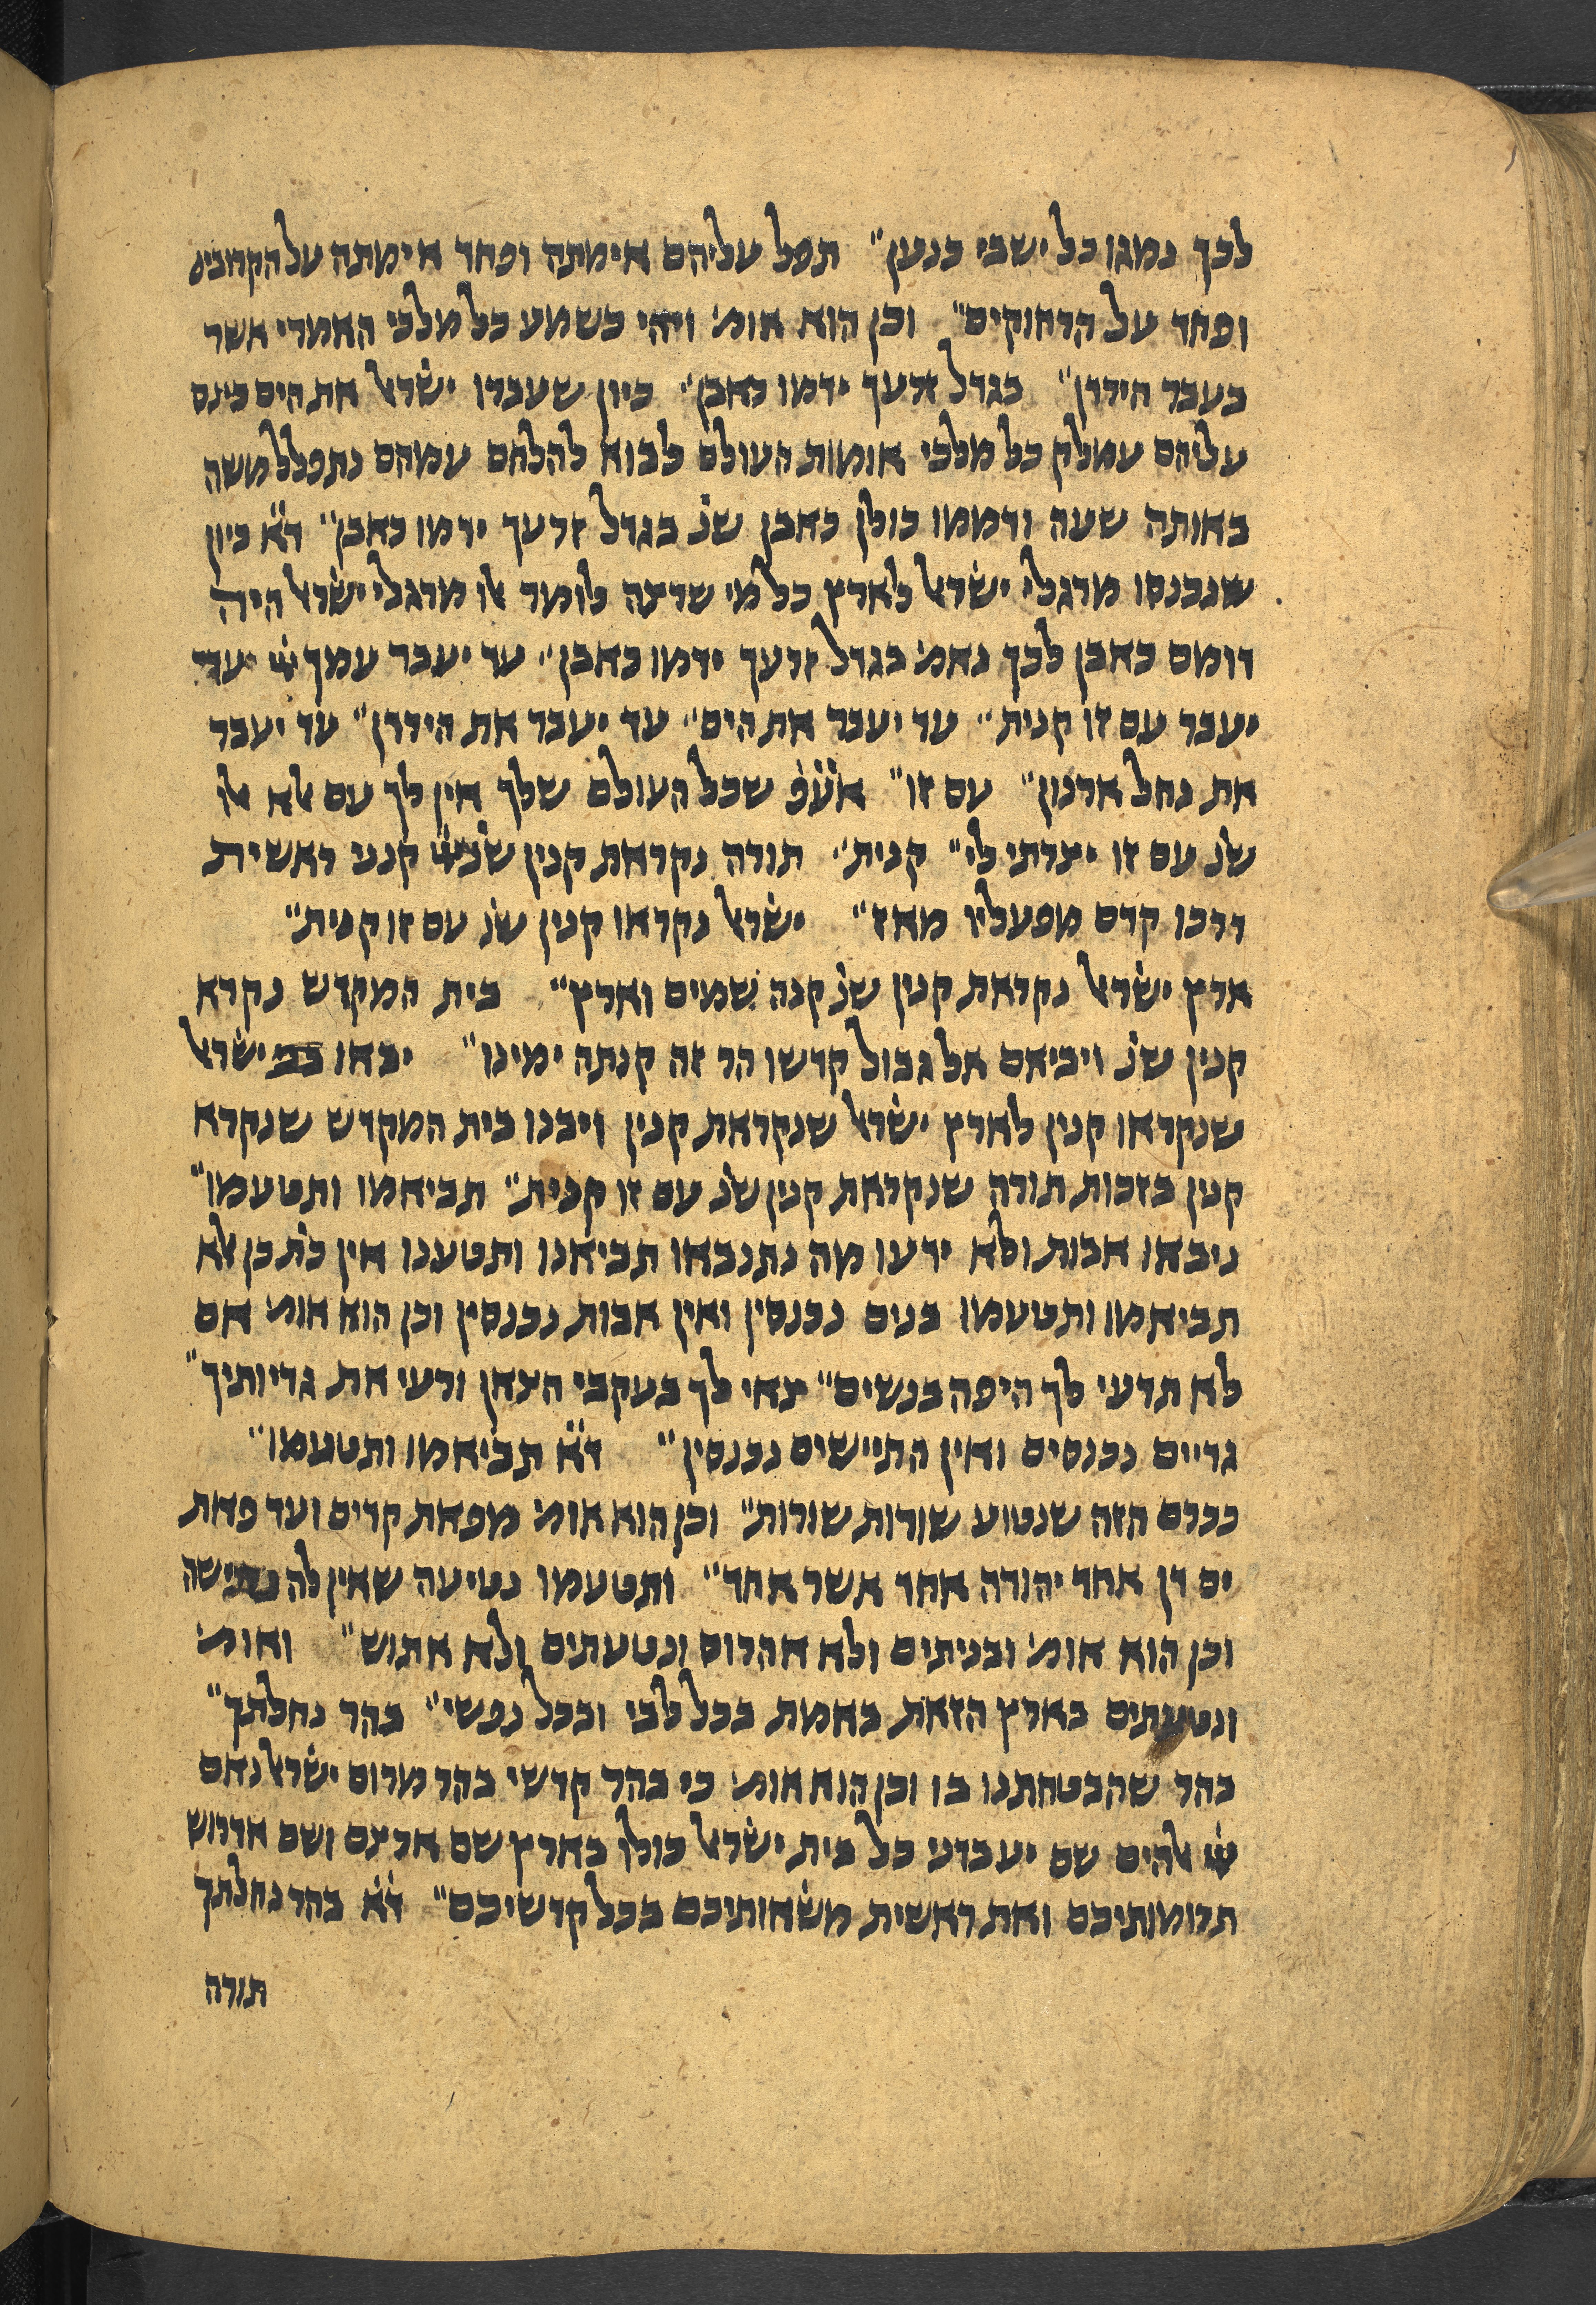 לכך נמגו כל ישבי כנען״ תפל עליהם אימתה ופחד אימתה על הקרובים
ופחד על הרחוקים״ וכן הוא אומ׳ ויהי כשמע כל מלכי האמרי אשר
בעבר הירדן״ בגדל זרעך ידמו כאבן״ כיון שעברו ישׂרא׳ את הים כינס
עליהם עמלק כל מלכי אומות העולם לבוא להלחם עמהם נתפלל משה
באותה שעה ודממו כולן כאבן שנ׳ בגדל זרעך ידמו כאבן״ ד״א כיון
שנכנסו מרגלי ישׂרא׳ לארץ כל מי שרצה לומר אלו מרגלי ישׂרא׳ היה
דומם כאבן לכך נאמ׳ בגדל זרעך ידמו כאבן״ עד יעבר עמך יי׳ עד
יעבר עם זו קנית״ עד יעבר את הים״ עד יעבר את הירדן״ עד יעבר
את נחל ארנון״ עם זו״ אע״פ שכל העולם שלך אין לך עם אלא אלו
שנ׳ עם זו יצרתי לי״ קנית״ תורה נקראת קנין שנ׳ יי׳ קנני ראשית
דרכו קדם מפעליו מאז״ ישׂרא׳ נקראו קנין שנ׳ עם זו קנית״
ארץ ישׂרא׳ נקראת קנין שנ׳ קנה שמים וארץ״ בית המקדש נקרא
קנין שנ׳ ויביאם אל גבול קדשו הר זה קנתה ימינו״ יבאו בני ישׂרא׳
שנקראו קנין לארץ ישׂרא׳ שנקראת קנין ויבנו בית המקדש שנקרא
קנין בזכות תורה שנקראת קנין שנ׳ עם זו קנית״ תביאמו ותטעמו״
ניבאו אבות ולא ידעו מה נתנבאו תביאנו ותטענו אין כת׳ כן אלא
תביאמו ותטעמו בנים נכנסין ואין אבות נכנסין וכן הוא אומ׳ אם
לא תדעי לך היפה בנשים״ צאי לך בעקבי הצאן ורעי את גדיותיך״
גדיים נכנסים ואין התיישים נכנסין״ ד״א תביאמו ותטעמו״
ככרם הזה שנטוע שורות שורות״ וכן הוא אומ׳ מפאת קדים ועד פאת
ים דן אחד יהודה אחד אשר אחד״ ותטעמו נטיעה שאין לה נתישה
וכן הוא אומ׳ ובניתים ולא אהרוס ונטעתים ולא אתוש״ ואומ׳
ונטעתים בארץ הזאת באמת בכל לבי ובכל נפשי״ בהר נחלתך״
בהר שהבטחתנו בו וכן הוא אומ׳ כי בהר קדשי בהר מרום ישׂרא׳ נאם
יי׳ אלהים שם יעבדני כל בית ישׂרא׳ כולו בארץ שם ארצם ושם אדרוש
תרומותיכם ואת ראשית משׂאותיכם בכל קדשיכם״ ד״א בהר נחלתך
תורה